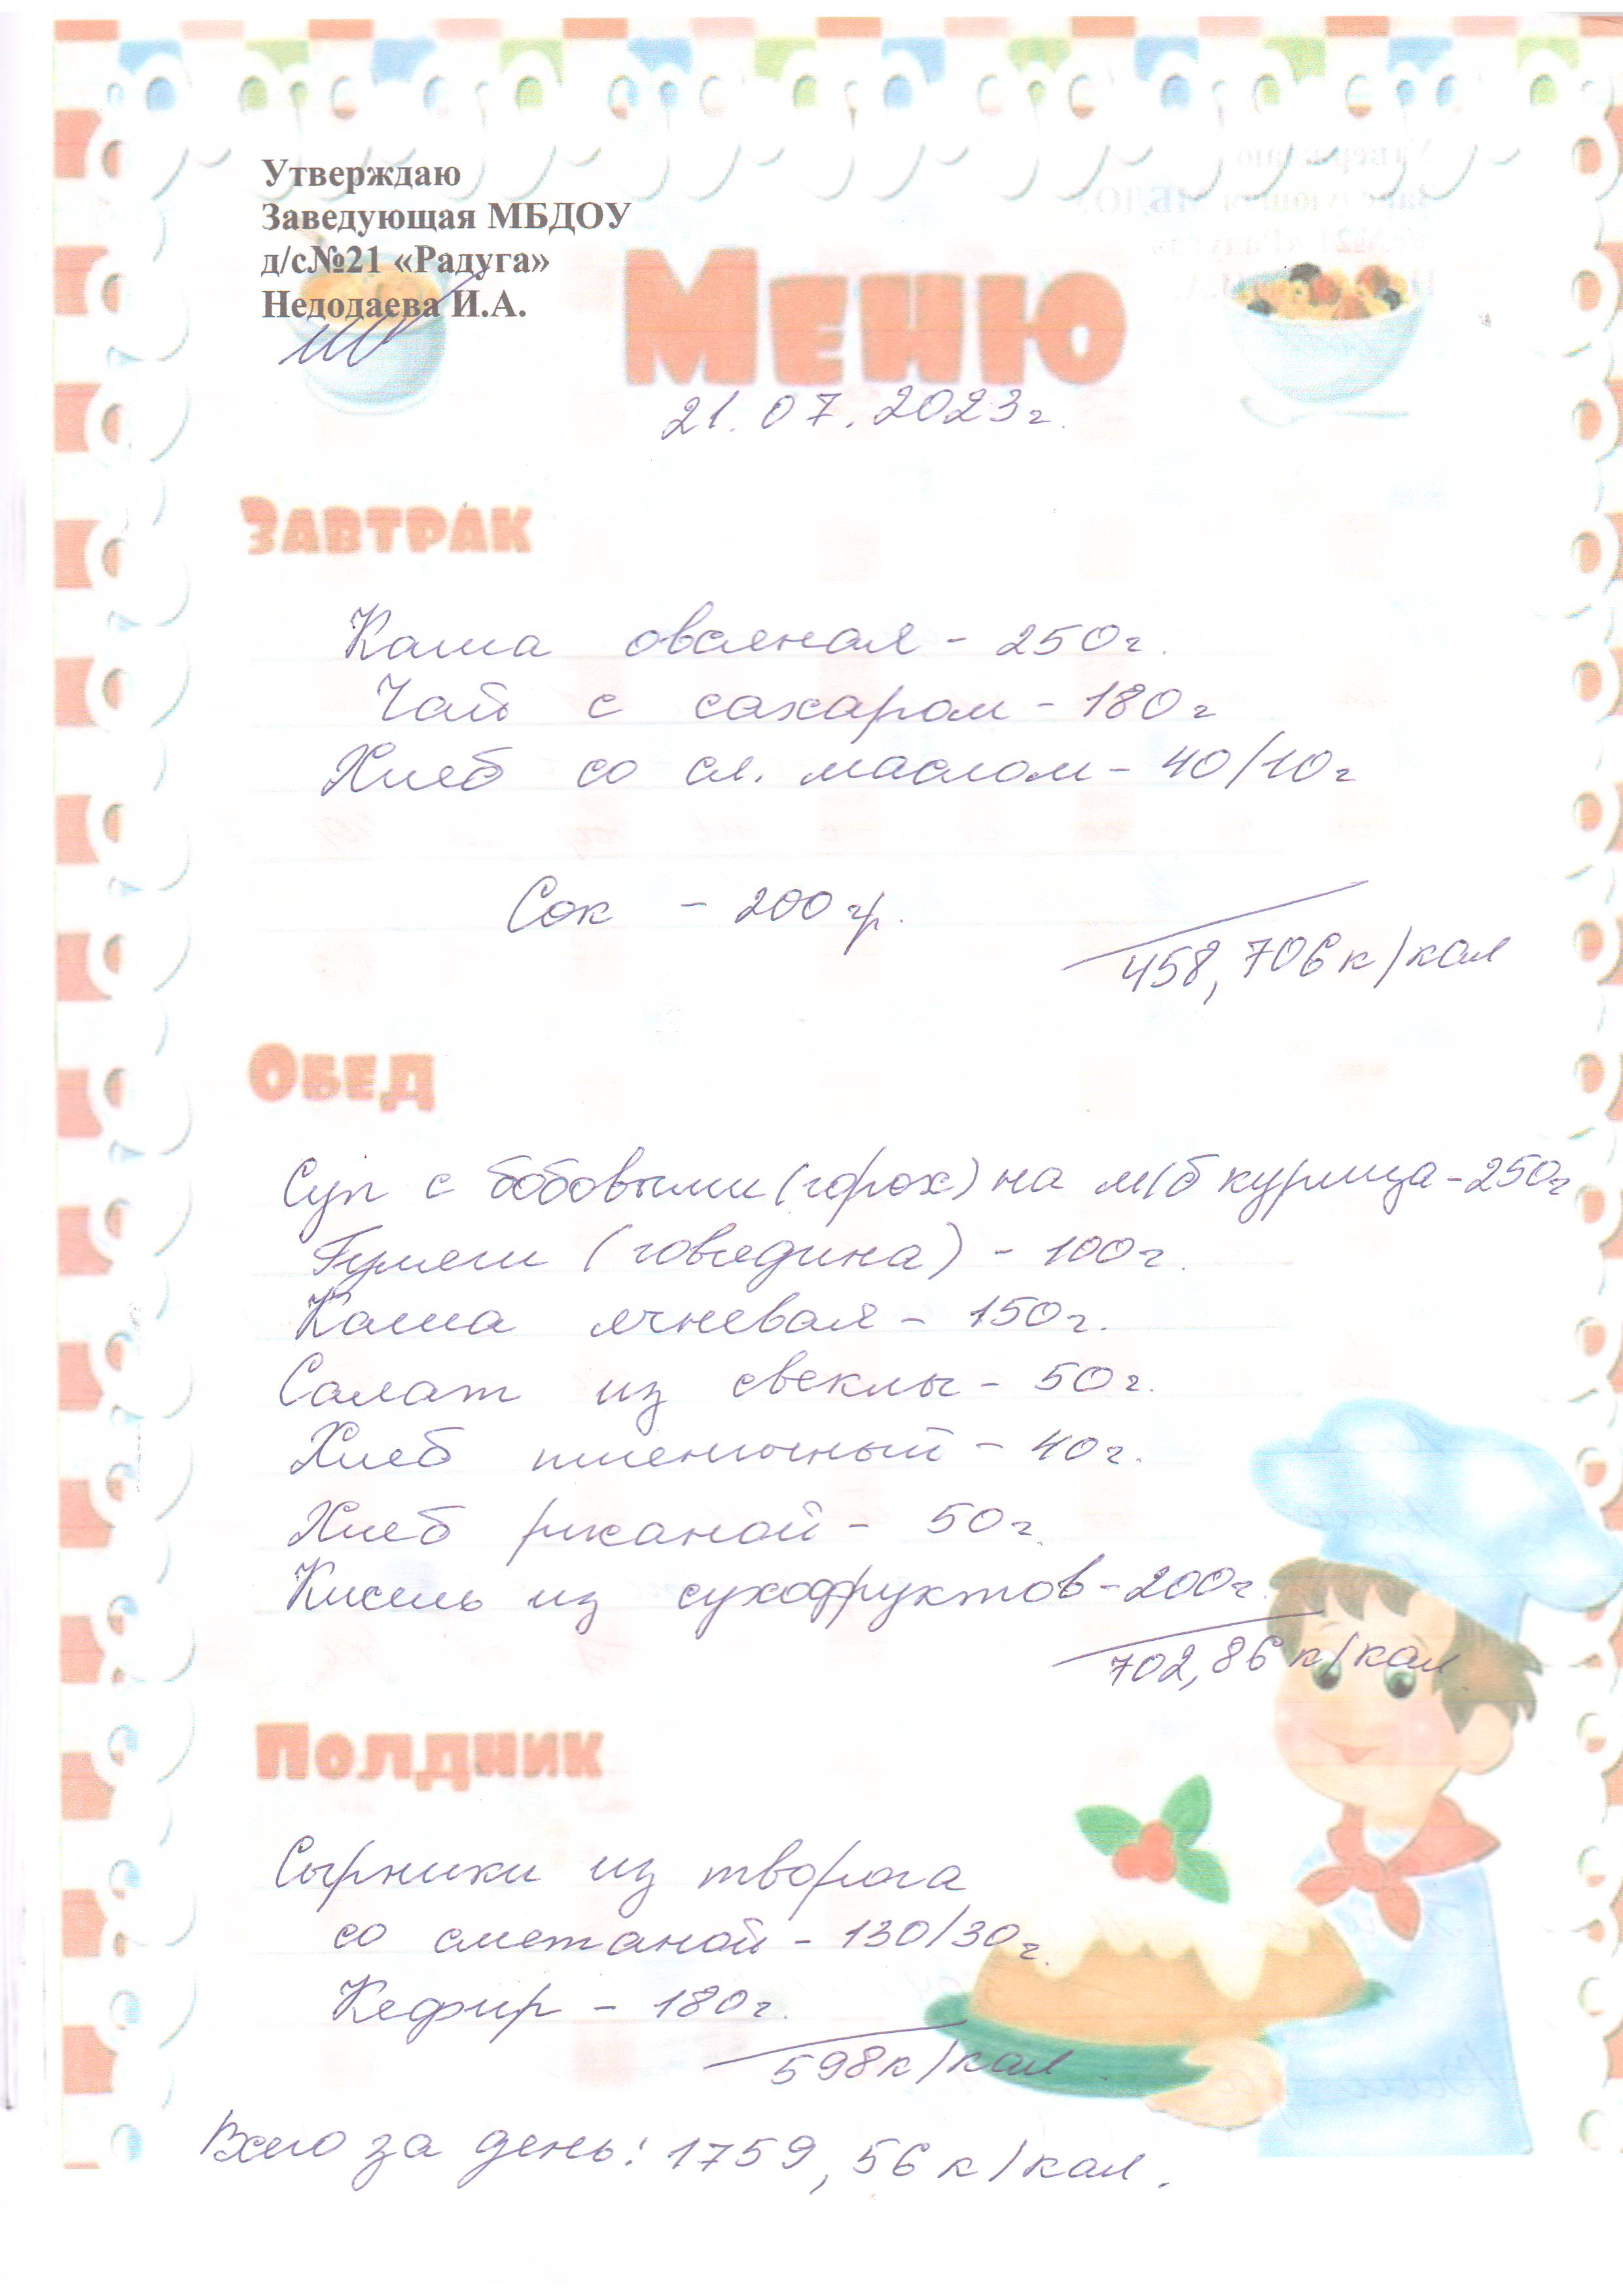 Утверждаю
Заведующая МБДОУ
д/с№21 «Радуга»
Недодаева И.А.
Меню
21.07.2023г.
Завтрак
Каша овсяная - 250г.
Чай с сахаром - 180г
Хлеб со сл. маслом - 40/10г
Сок - 200гр.
458,706к/кал
Обед
Суп с бобовыми (горох) на м/б курица - 250г
Гуляш (говядина) - 100г.
Каша ячневая - 150г.
Салат из свеклы - 50г.
Хлеб пшеничный - 40г.
Хлеб ржаной - 50г.
Кисель из сухофруктов - 200г.
702,86 к/кал
Полдник
Сырники из творога
со сметаной - 130/30г.
Кефир - 180г.
598к/кал
Всего за день: 1759,56 к/кал.